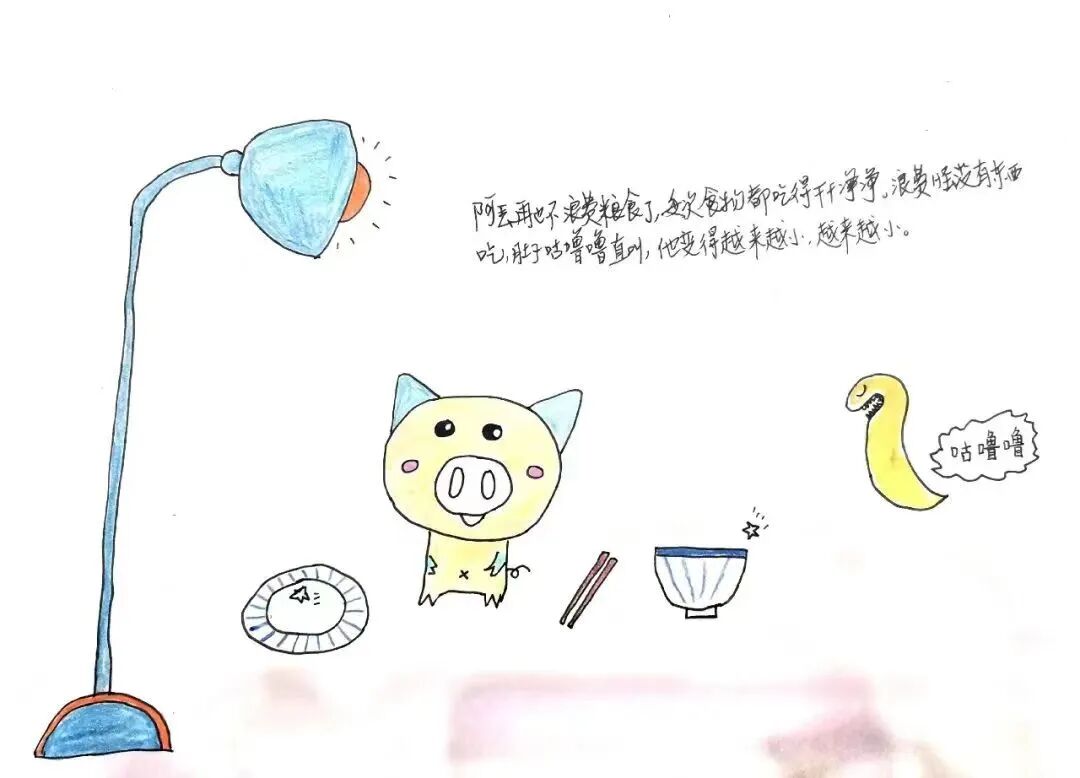 阿丢再也不浪费粮食了,每次食物都吃得干干净净。浪费怪没有东西
吃,肚子咕噜噜直叫,他变得越来越小,越来越小。
咕噜噜